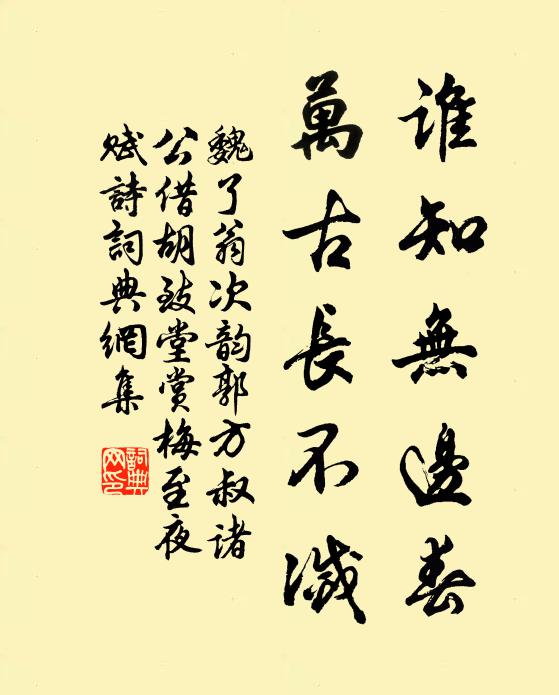 誰知無邊春
萬古長不滅
魏了翁次韵郭方叔诸
公借胡致堂賞梅至夜
赋詩詞典網集
詞典网印